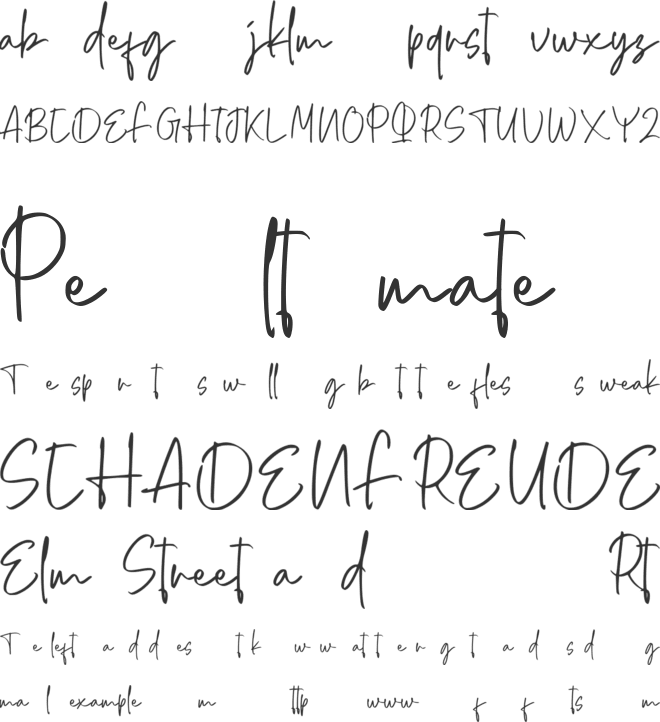 ab defg jklm pqrst vwxyz
ABCDEFGHIJKLMNOPQRSTUVWXYZ
Pe lt mate
T e sp r t s w ll g b t t e fles s weak
SCHADENFREUDE
Elm Street a d Rt
T e left a d d es t k w w at t e r g t a d s d g
ma l example m ttp www f f ts m